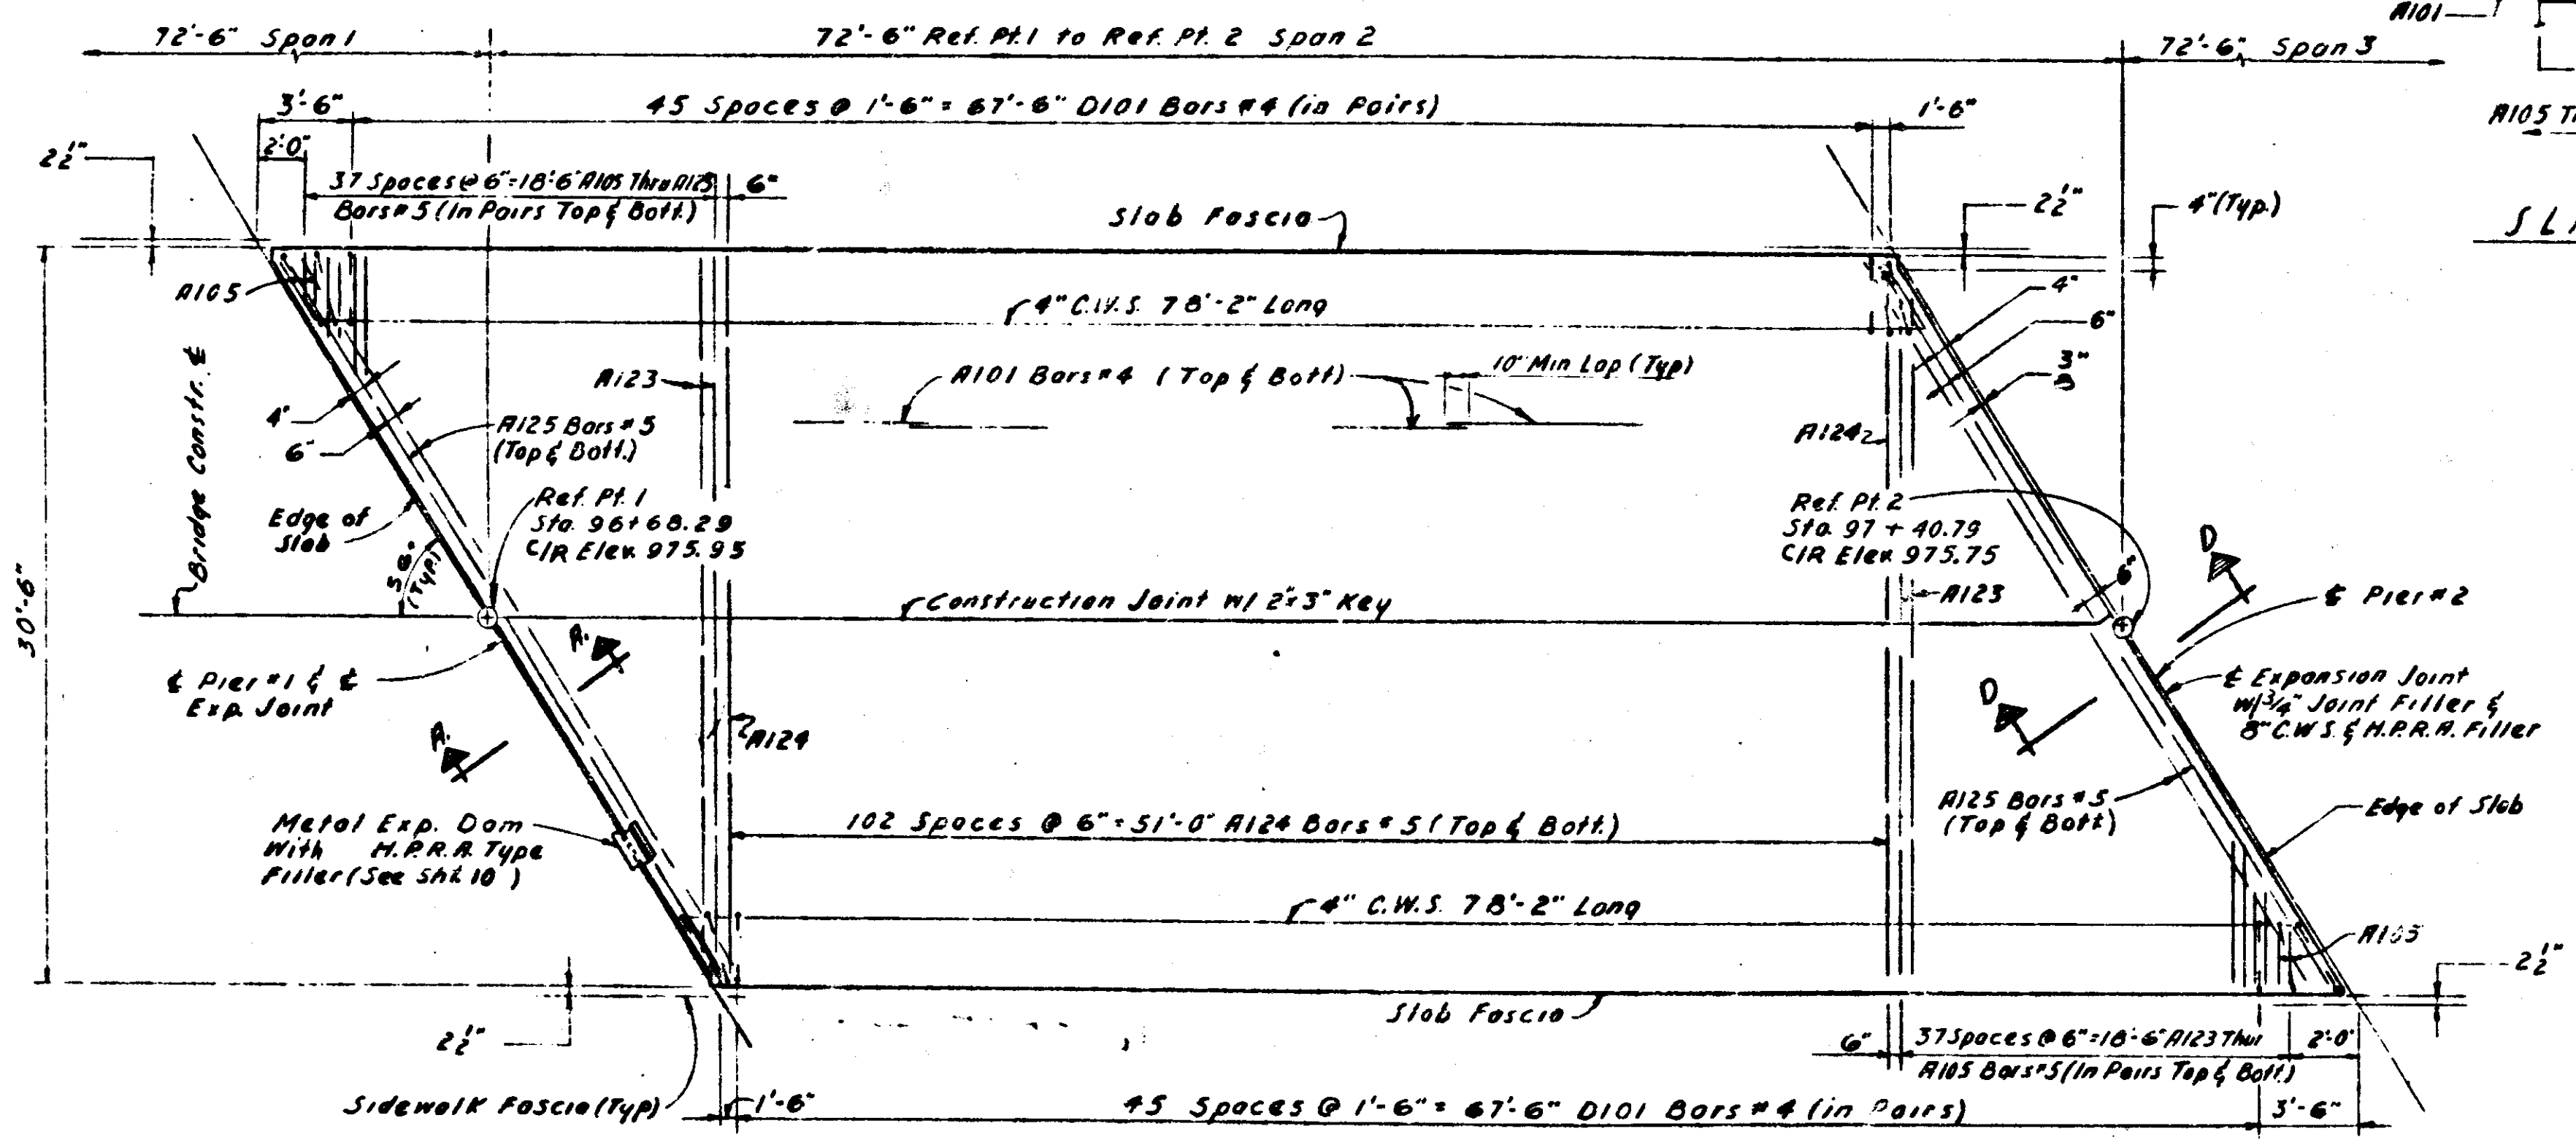 72'-6" Span 1
72'-6" Ref. Pt. 1 to Ref. Pt. 2 Span 2
72'-6" Span 3
A101
3'-6"
45 Spaces @ 1'-6" = 67'-6" D101 Bars #4 (in Pairs)
1'-6"
2'-0"
2½"
37 Spaces @ 6" = 18'-6" A105 Thru A123
6"
Bars #5 (In Pairs Top & Bott.)
Slab Fascia
2½"
4" (Typ.)
A105
A105
4" C.W.S. 78'-2" Long
4"
6"
Bridge Constr. ℄
A123
A101 Bars #4 (Top & Bott)
10" Min Lap (Typ)
3"
4"
6"
A125 Bars #5
(Top & Bott.)
A124
Edge of
Slab
Ref. Pt. 1
Sta. 96+68.29
C/R Elev. 975.95
Ref. Pt. 2
Sta. 97 + 40.79
C/R Elev. 975.75
(Typ.)
30'-6"
Construction Joint W/ 2"x3" Key
A123
6"
D
℄ Pier #2
A.
℄ Pier #1 & ℄
Exp. Joint
℄ Expansion Joint
W/ 3/4" Joint Filler &
8" C.W.S. & H.P.R.A. Filler
D
A.
A124
Metal Exp. Dam
With H.P.R.A. Type
Filler (See Sht. 10)
102 Spaces @ 6" = 51'-0" A124 Bars #5 (Top & Bott.)
A125 Bars #5
(Top & Bott)
Edge of Slab
4" C.W.S. 78'-2" Long
A105
2½"
Slab Fascia
2½"
6"
37 Spaces @ 6" = 18'-6" A123 Thru
2'-0"
A105 Bars #5 (In Pairs Top & Bott.)
Sidewalk Fascia (Typ)
1'-6"
45 Spaces @ 1'-6" = 67'-6" D101 Bars #4 (in Pairs)
3'-6"